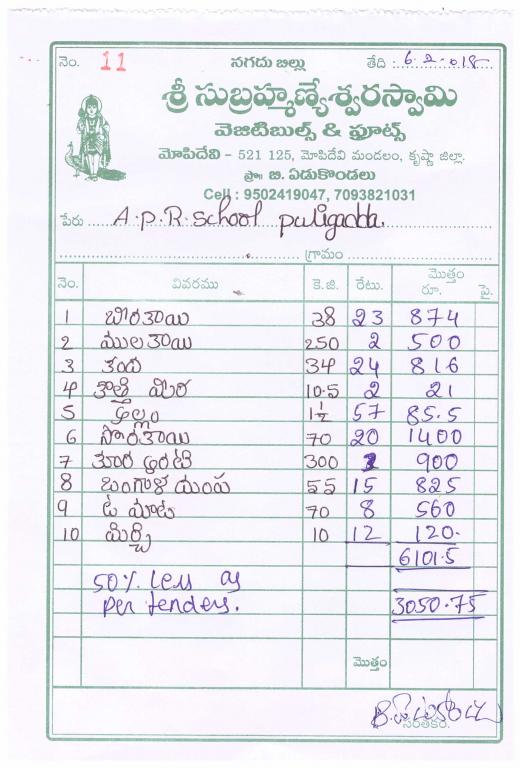 నెం. 11 నగదు బిల్లు తేది : 6.2.018
శ్రీ సుబ్రహ్మణ్యేశ్వరస్వామి
వెజిటిబుల్స్ & ఫ్రూట్స్
మోపిదేవి - 521 125, మోపిదేవి మండలం, కృష్ణా జిల్లా.
ప్రొ॥ బి. ఏడుకొండలు
Cell : 9502419047, 7093821031
పేరు A.p.R.school puligadda.
గ్రామం
నెం. వివరము కె.జి. రేటు. మొత్తం రూ. పై.
1 బీరకాయ 38 23 874
2 ములకాయ 250 2 500
3 కంద 34 24 816
4 కొత్తి మీర 10.5 2 21
5 అల్లం 1½ 57 85.5
6 సొరకాయ 70 20 1400
7 కూర అరటి 300 3 900
8 బంగాళ దుంప 55 15 825
9 ట మాట 70 8 560
10 మిర్చి 10 12 120.
6101.5
50% Less as
per tenders.
3050.75
మొత్తం
B. ఏడుకొండలు
సంతకం.